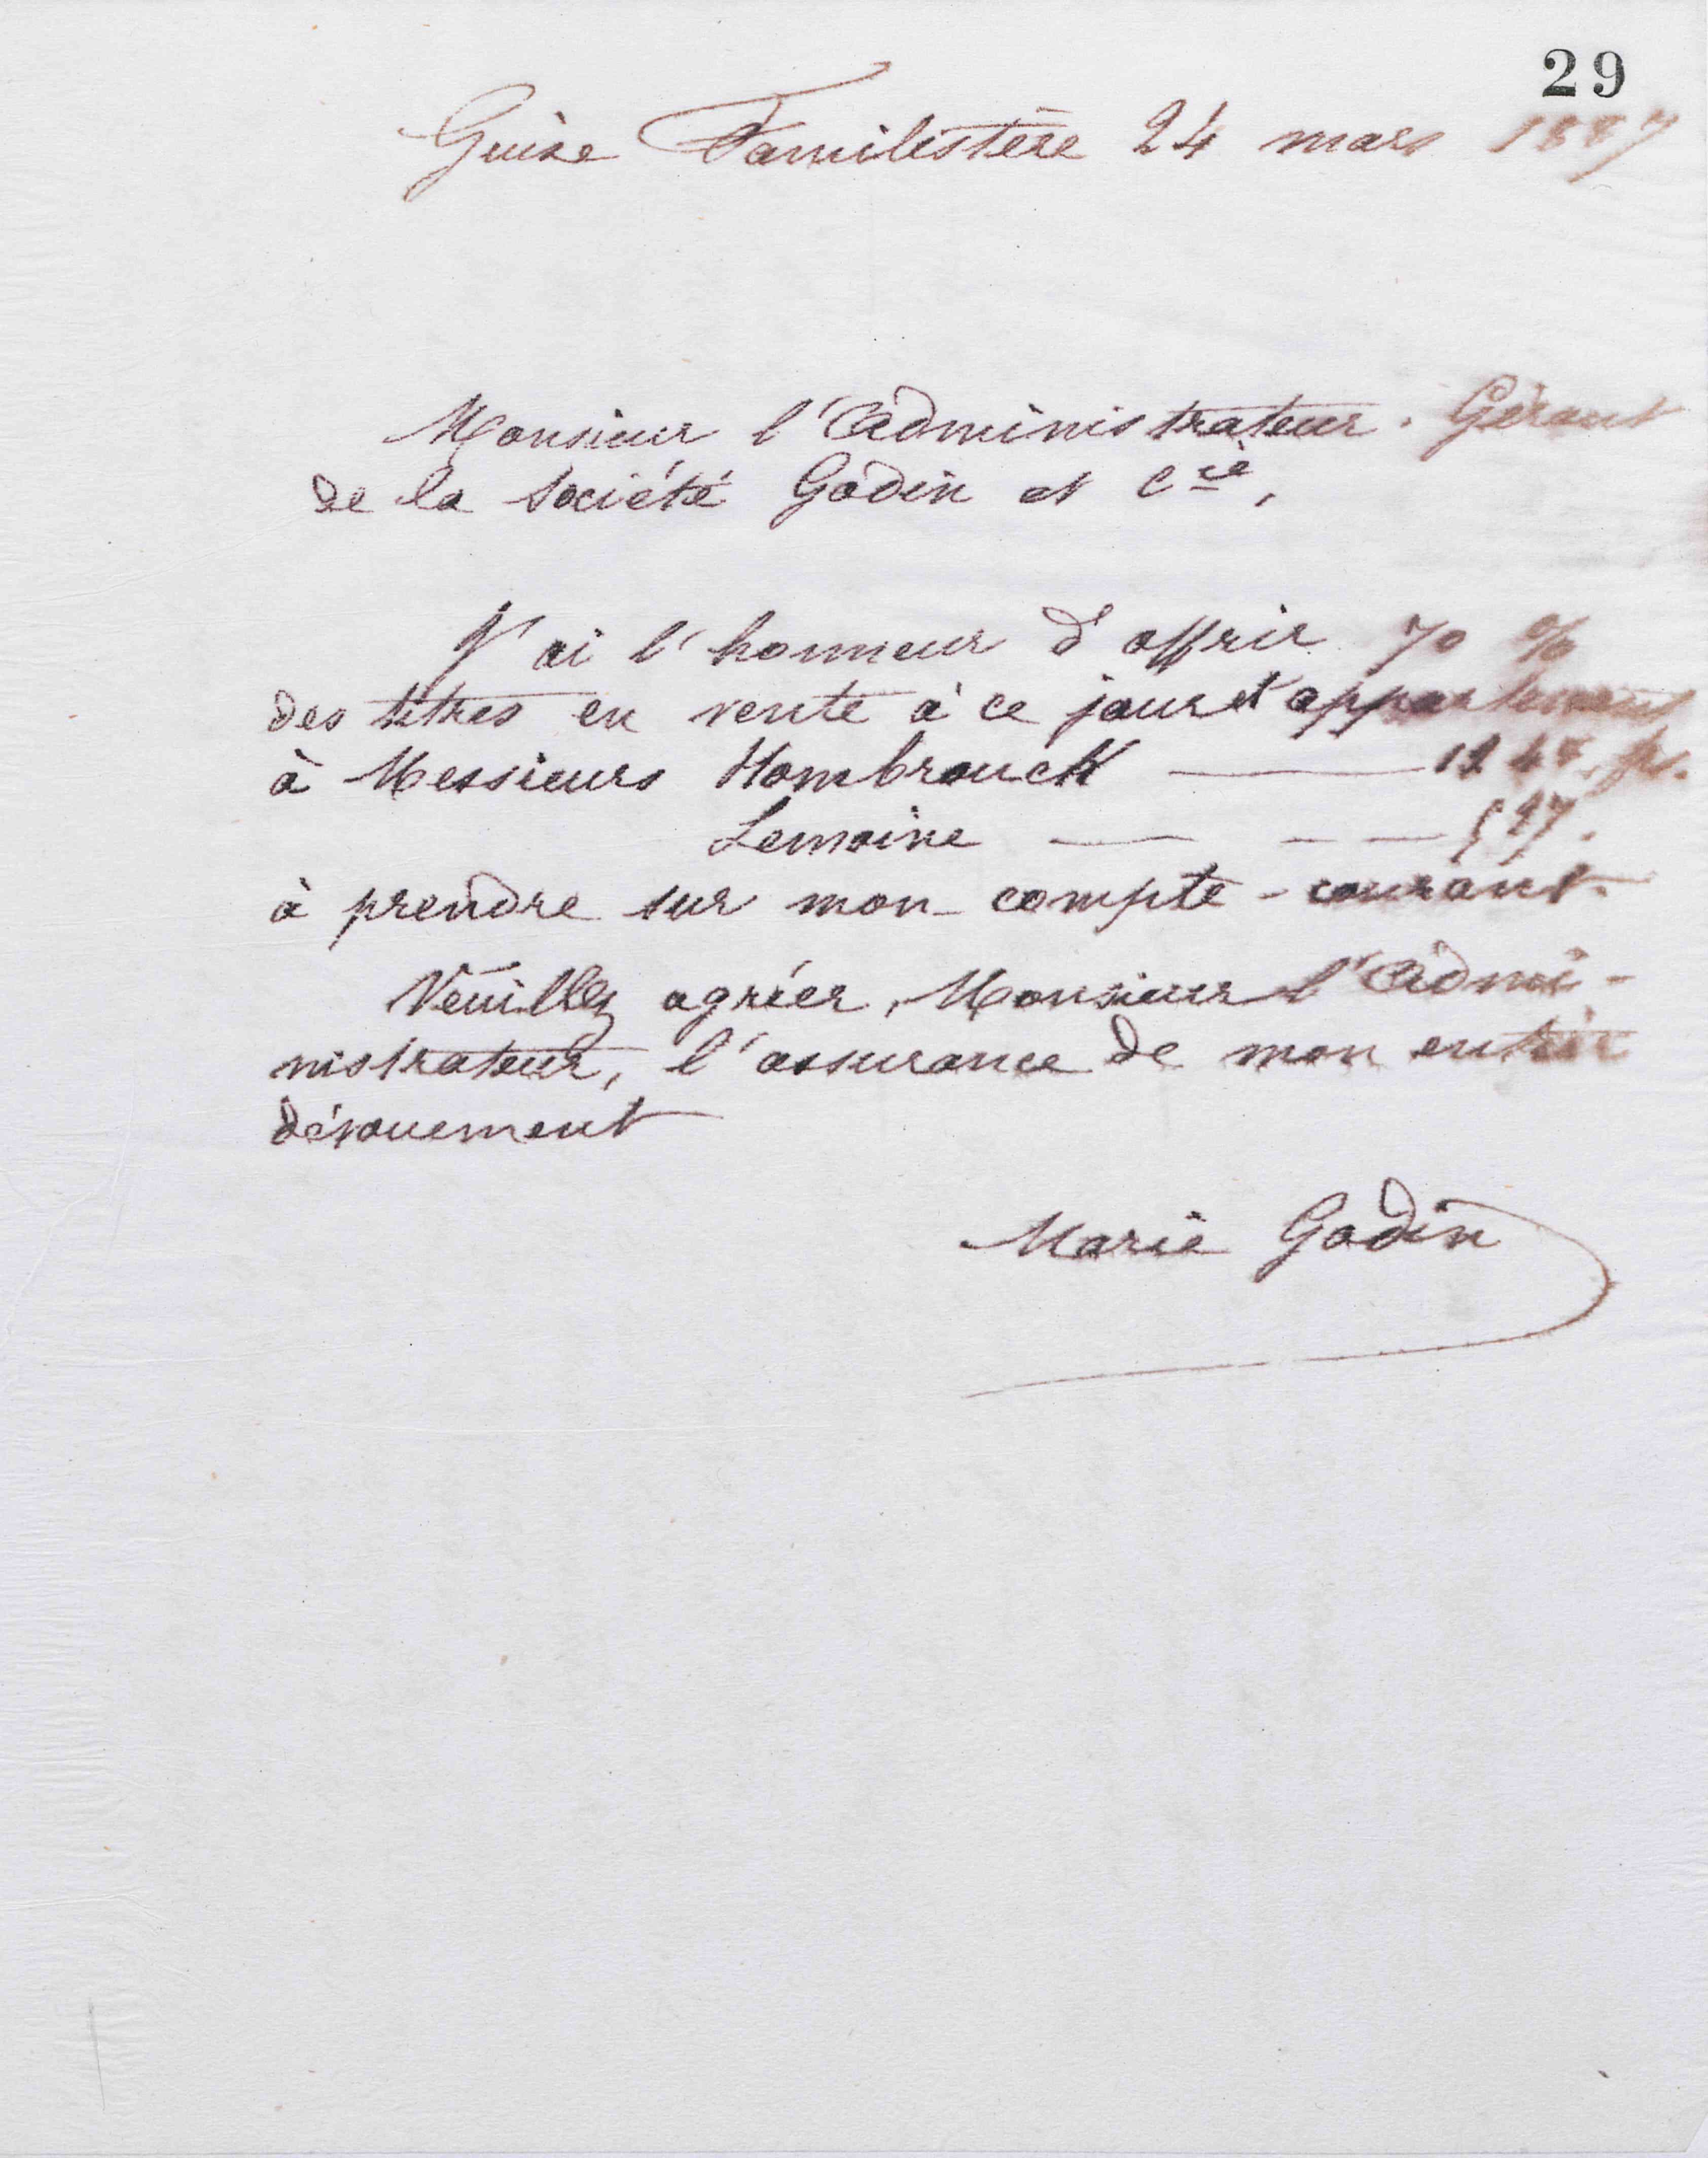 29
Guise Familistère 24 mars 1887
Monsieur l'Administrateur-Gérant
de la Société Godin et Cie,
J'ai l'honneur d'offrir 70 %
des titres en vente à ce jour et appartenant
à Messieurs Hombrouck — fr.
Lemoine — — —
à prendre sur mon compte-courant.
Veuillez agréer, Monsieur l'Admi-
nistrateur, l'assurance de mon entier
dévouement
Marie Godin